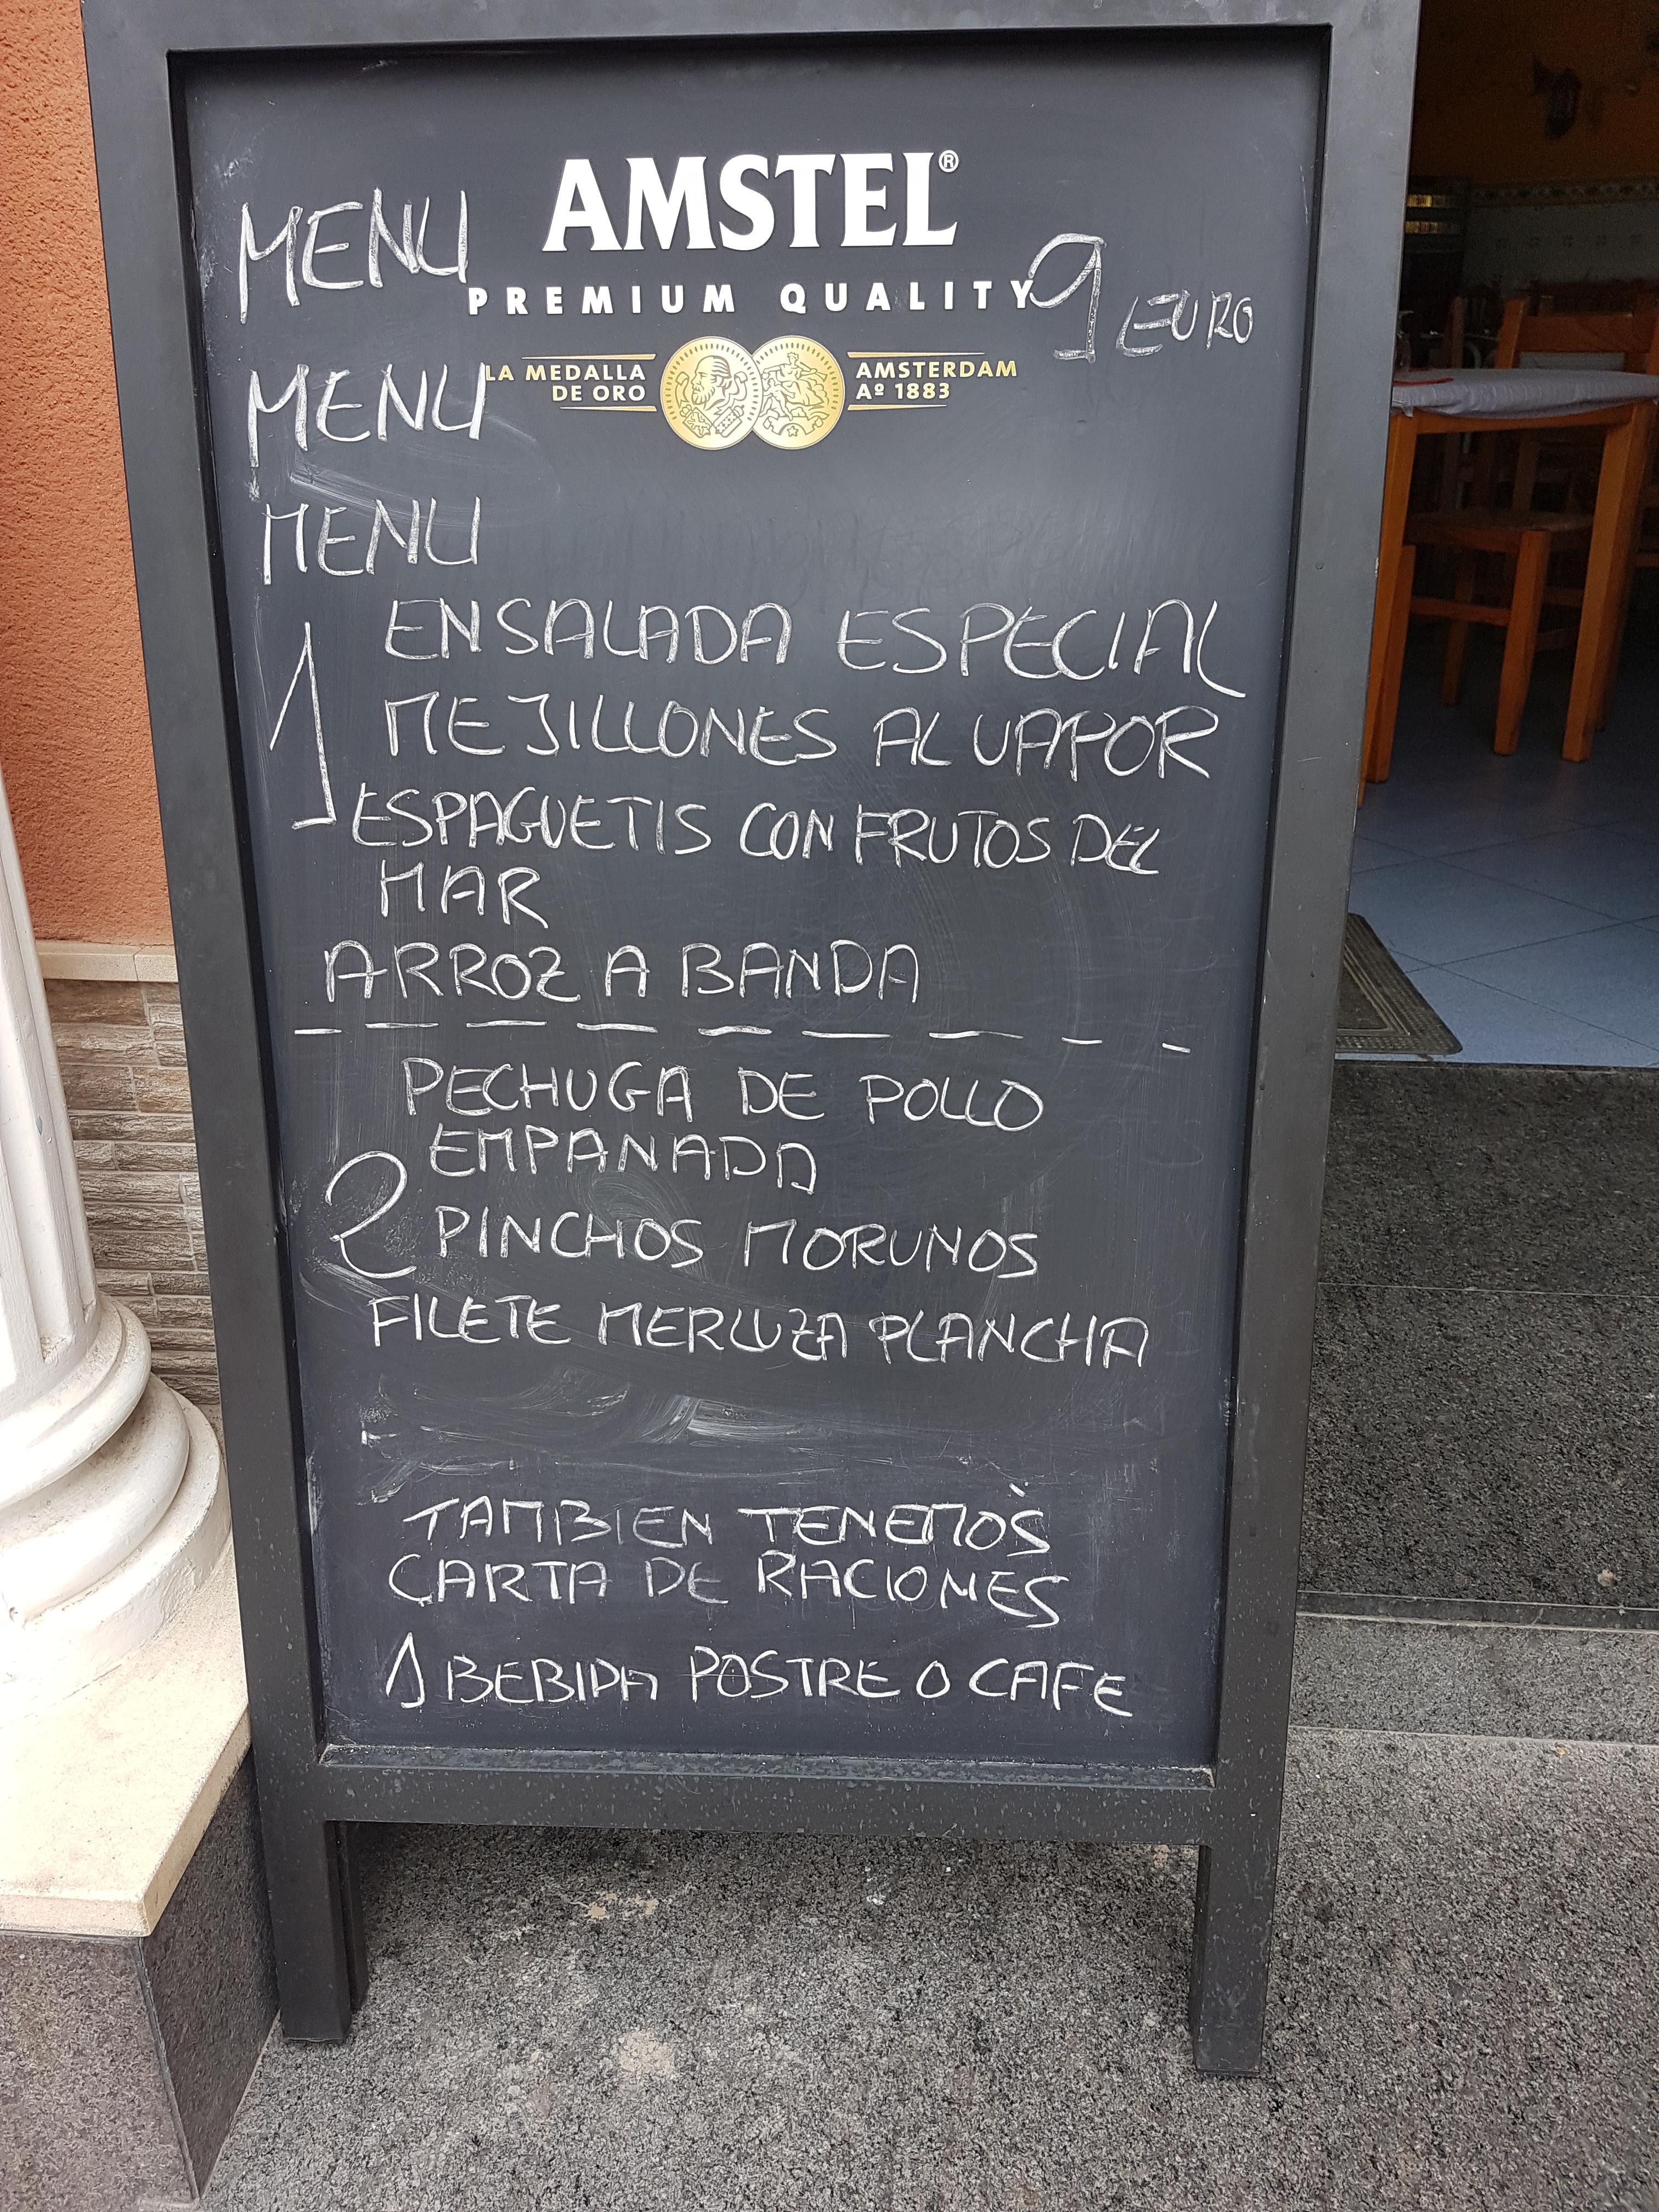 AMSTEL®
MENU
PREMIUM QUALITY
9 EURO
LA MEDALLA DE ORO
AMSTERDAM Aº 1883
MENU
MENU
1
ENSALADA ESPECIAL
MEJILLONES AL VAPOR
ESPAGUETIS CON FRUTOS DEL
MAR
ARROZ A BANDA
PECHUGA DE POLLO
EMPANADA
2
PINCHOS MORUNOS
FILETE MERLUZA PLANCHA
TAMBIEN TENEMOS
CARTA DE RACIONES
1 BEBIDA POSTRE O CAFE